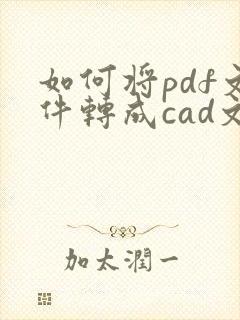 如何将pdf文
件轉成cad文
加太潤一